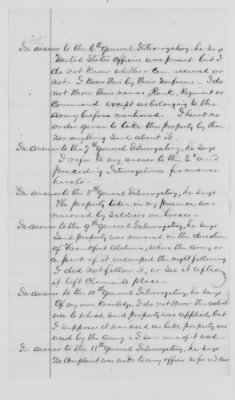 In answer to the 6th general Interrogatory, he says
United States Officers was present but I
do not know whether Com. received or
not. I knew this by their Uniforms. I do
not know their names, Rank, Regiment or
Command except as belonging to the
Army before mentioned. I heard no
order given to take this property by them
nor anything said about it.
In answer to the 7th general Interrogatory, he says
I refer to my answer to the 2d and
preceeding Interrogatories for answer
hereto.
In answer to the 8th general Interrogatory, he says
The property taken in my presence was
removed by Soldiers on horses.
In answer to the 9th general Interrogatory, he says
Said property was removed in the direction
of Frankfort Alabama, where the army or
a part of it encamped the night following
I did not follow it, or see it after
it left Claimants place.
In answer to the 10th general Interrogatory, he says
Of my own knowledge, I do not know the actual
use to which said property was applied, but
I suppose it was used as like property was
used by the army. I saw none of it used.
In answer to the 11th general Interrogatory, he says
No Complaint was made to any officer as far as I know